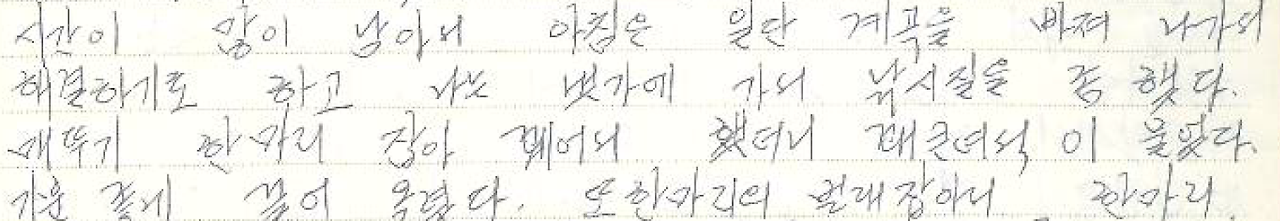 시간이 많이 남아서 아침은 일단 계곡을 빠져 나가서
해결하기로 하고 나는 냇가에 가서 낚시질을 좀 했다.
메뚜기 한마리 잡아 꿰어서 했더니 꽤 큰녀석이 물었다.
기운 좋게 끌어 올렸다. 또한마리의 벌레 잡아서 한마리